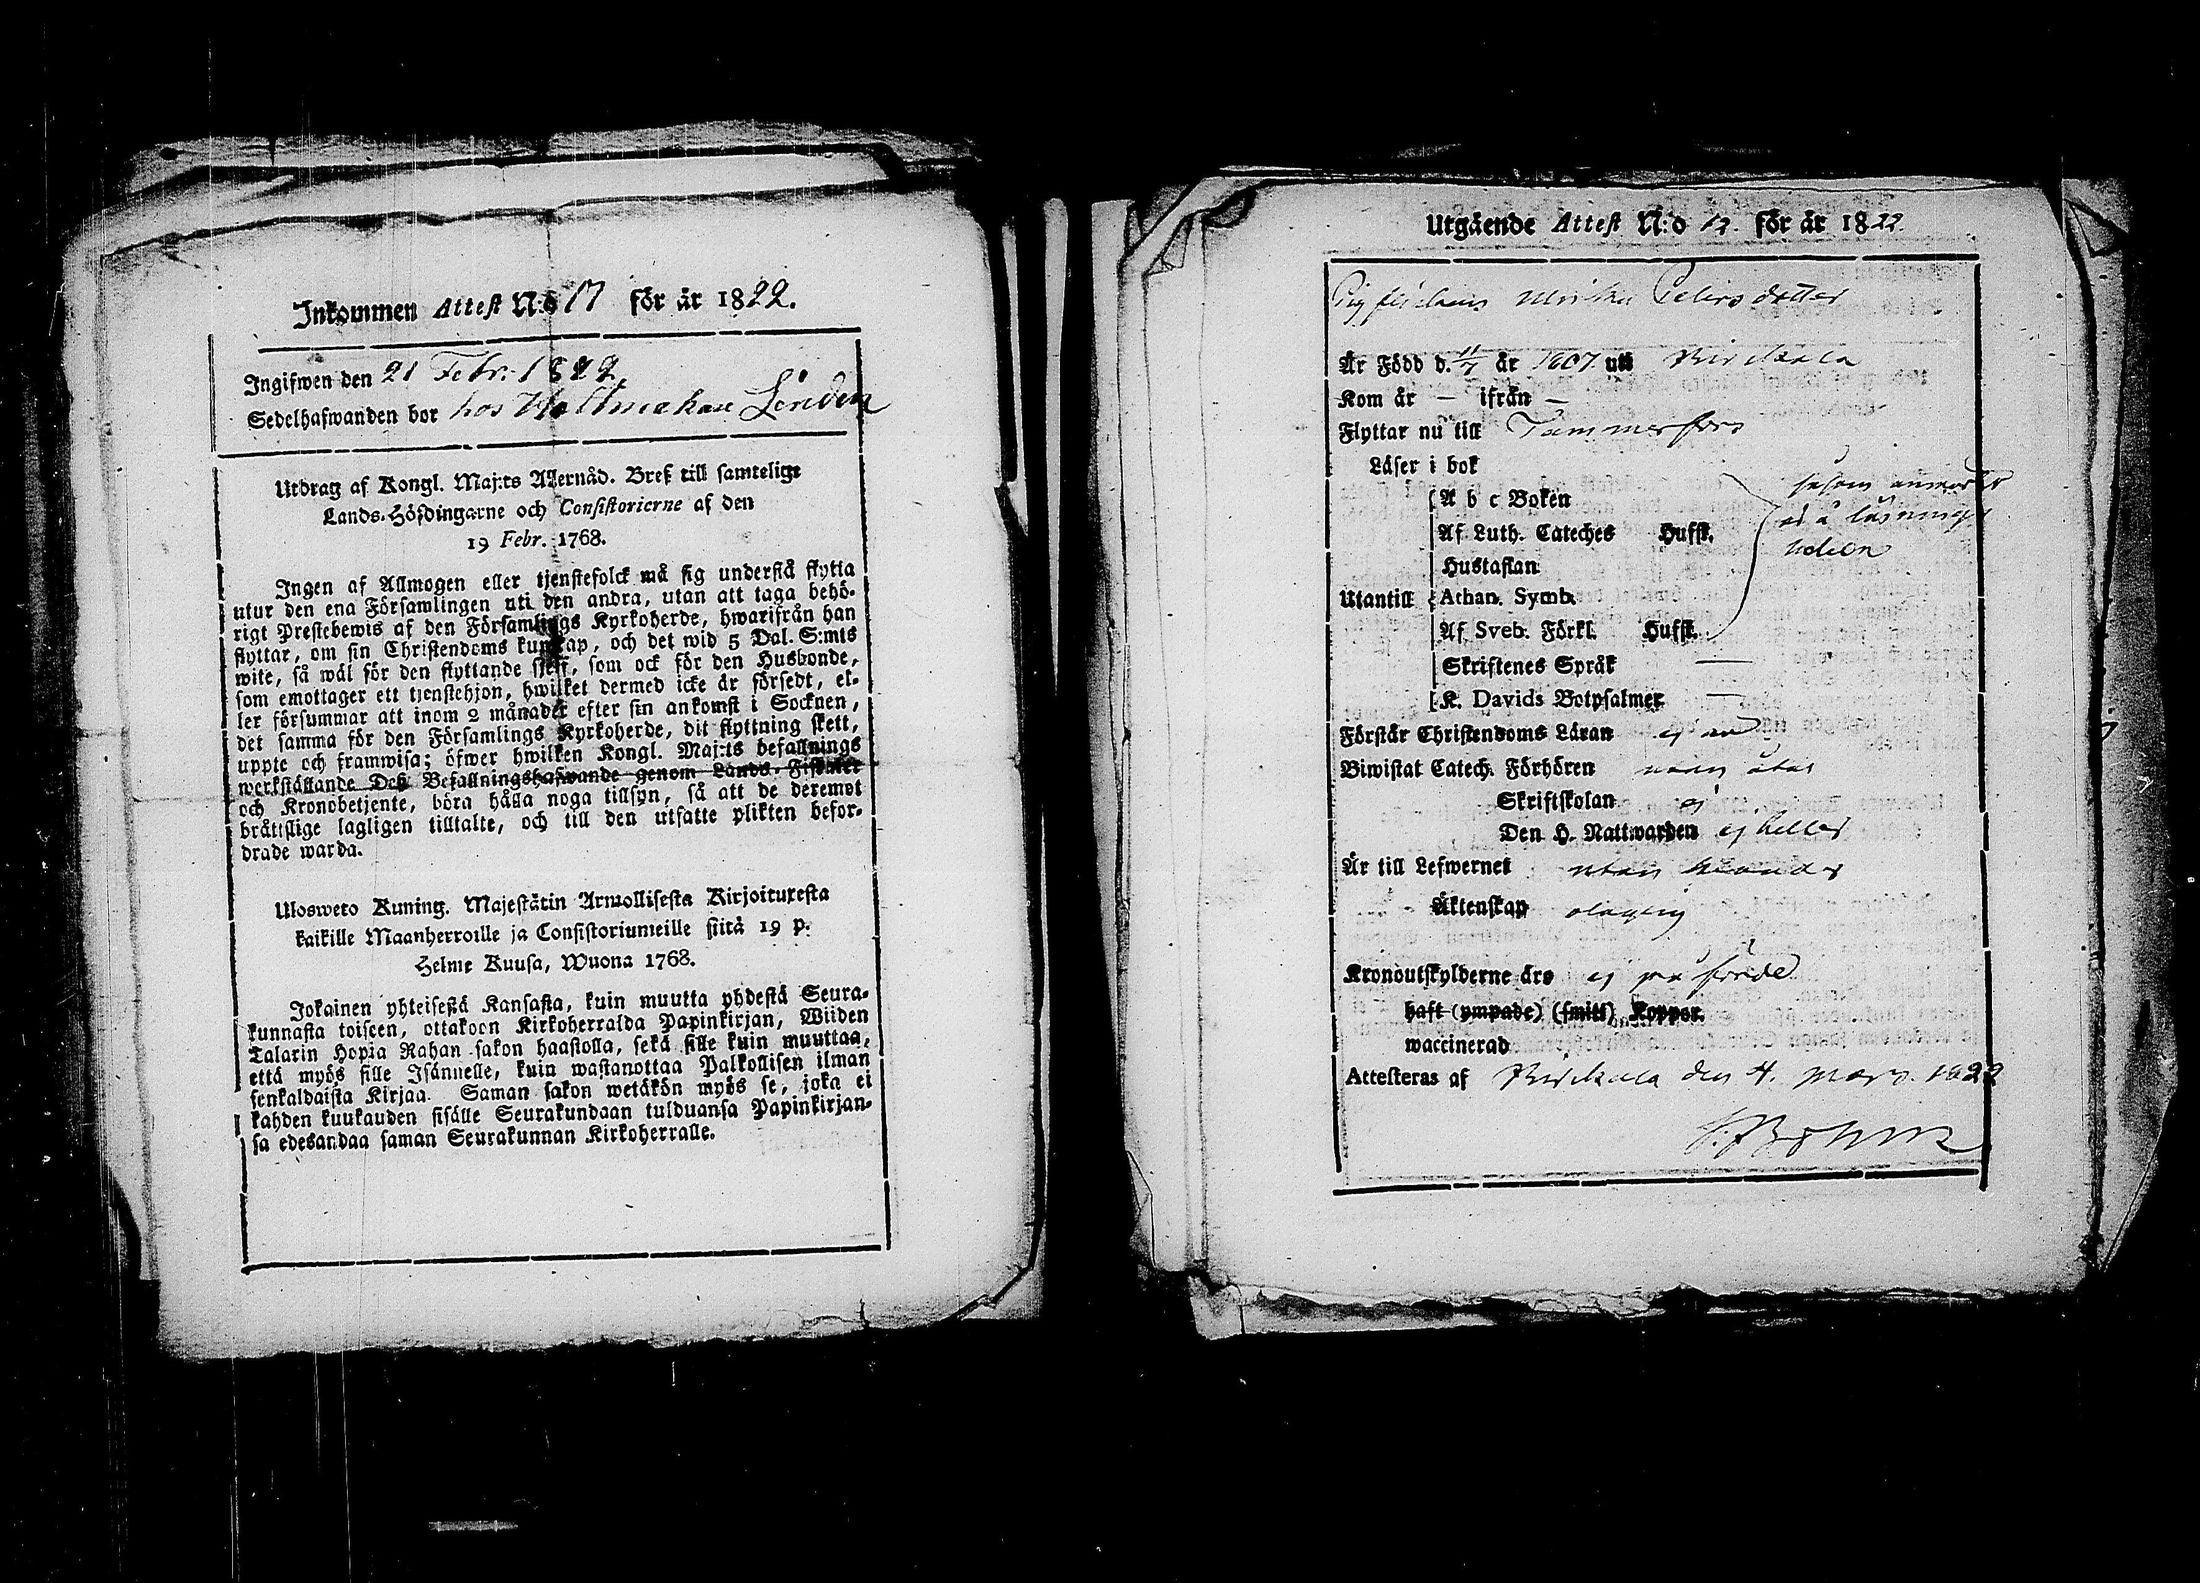 Inkommen Attest N:o 17 för år 1822.
Ingifwen den 21 Febr. 1822
Sedelhafwanden bor hos Hattmakare Lindén
Utdrag af Kongl. Maj:ts Allernåd. Bref till samtelige
Lands-Höfdingarne och Consistorierne af den
19 Febr. 1768.
Ingen af Allmogen eller tjenstefolck må sig understå flytta
utur den ena Församlingen uti den andra, utan att taga behö-
rigt Prestebewis af den Församlings Kyrkoherde, hwarifrån han
flyttar, om sin Christendoms kunskap, och det wid 5 Dal. S:mts
wite, så wäl för den flyttande sjelf, som ock för den Husbonde,
som emottager ett tjenstehjon, hwilket dermed icke är försedt, el-
ler försummar att inom 2 månader efter sin ankomst i Socknen,
det samma för den Församlings Kyrkoherde, dit flyttning skett,
uppte och framwisa; öfwer hwilken Kongl. Maj:ts befallnings
werkställande Deß Befallningshafwande genom Lands-Fiskaler
och Kronobetjente, böra hålla noga tillsyn, så att de deremot
bråttslige lagligen tilltalte, och till den utsatte plikten befor-
drade warda.
Ulosweto Kuning. Majestätin Armollisesta Kirjoituxesta
kaikille Maanherroille ja Consistoriumeille siitä 19 p.
Helme Kuusa, Wuona 1768.
Jokainen yhteisestä Kansasta, kuin muutta yhdestä Seura-
kunnasta toiseen, ottakoon Kirkoherralda Papinkirjan, Wiiden
Talarin Hopia Rahan sakon haastolla, sekä sille kuin muuttaa,
että myös sille Isännelle, kuin wastanottaa Palkollisen ilman
senkaldaista Kirjaa. Saman sakon wetäkön myös se, joka ei
kahden kuukauden sisälle Seurakundaan tulduansa Papinkirjan-
sa edesandaa saman Seurakunnan Kirkoherralle.
Utgående Attest N:o 12. för år 1822.
Pig flickan Ulrika Petersdotter
Är Född d. 11/7 år 1807 uti Birckala
Kom år — ifrån —
Flyttar nu till Tammerfors
Läser i bok
A b c Boken
såsom antecknat
Af Luth. Cateches Hufst.
Hustaflan
Utantill Athan. Symb.
Af Sveb. Förkl. Hufst.
Skriftenes Språk —
K. Davids Botpsalmer —
Förstår Christendoms Läran
Biwistat Catech. Förhören
Skriftskolan ej
Den H. Nattwarden ej heller
Är till Lefwernet utan klander
Äktenskap olaglig
Kronoutskylderne äro ej på förde
haft (ympade) (smitt) Koppor.
waccinerad
Attesteras af Birckala den 4. mars. 1822